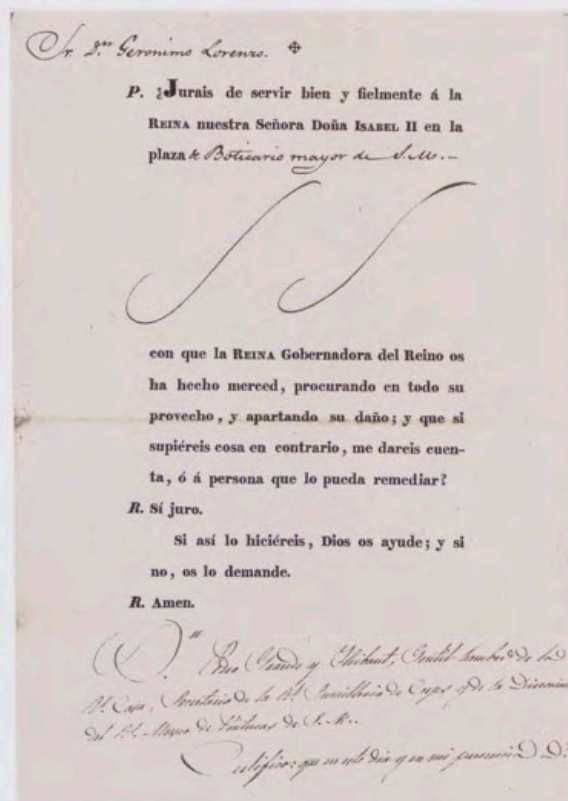 Sr. Dn. Geronimo Lorenzo.
P. ¿Jurais de servir bien y fielmente á la
REINA nuestra Señora Doña ISABEL II en la
plaza de Boticario mayor de S.M.
con que la REINA Gobernadora del Reino os
ha hecho merced, procurando en todo su
provecho, y apartando su daño; y que si
supiéreis cosa en contrario, me dareis cuen-
ta, ó á persona que lo pueda remediar?
R. Sí juro.
Si así lo hiciéreis, Dios os ayude; y si
no, os lo demande.
R. Amen.
Dn. Pedro Grande y, Gentil hombre de la
Rl. Casa, Secretario de la Rl. Sumilleria de Corps y de la Direccion
del Rl. Museo de Pinturas de S.M.
Certifico: que en este dia y en mi presencia D.